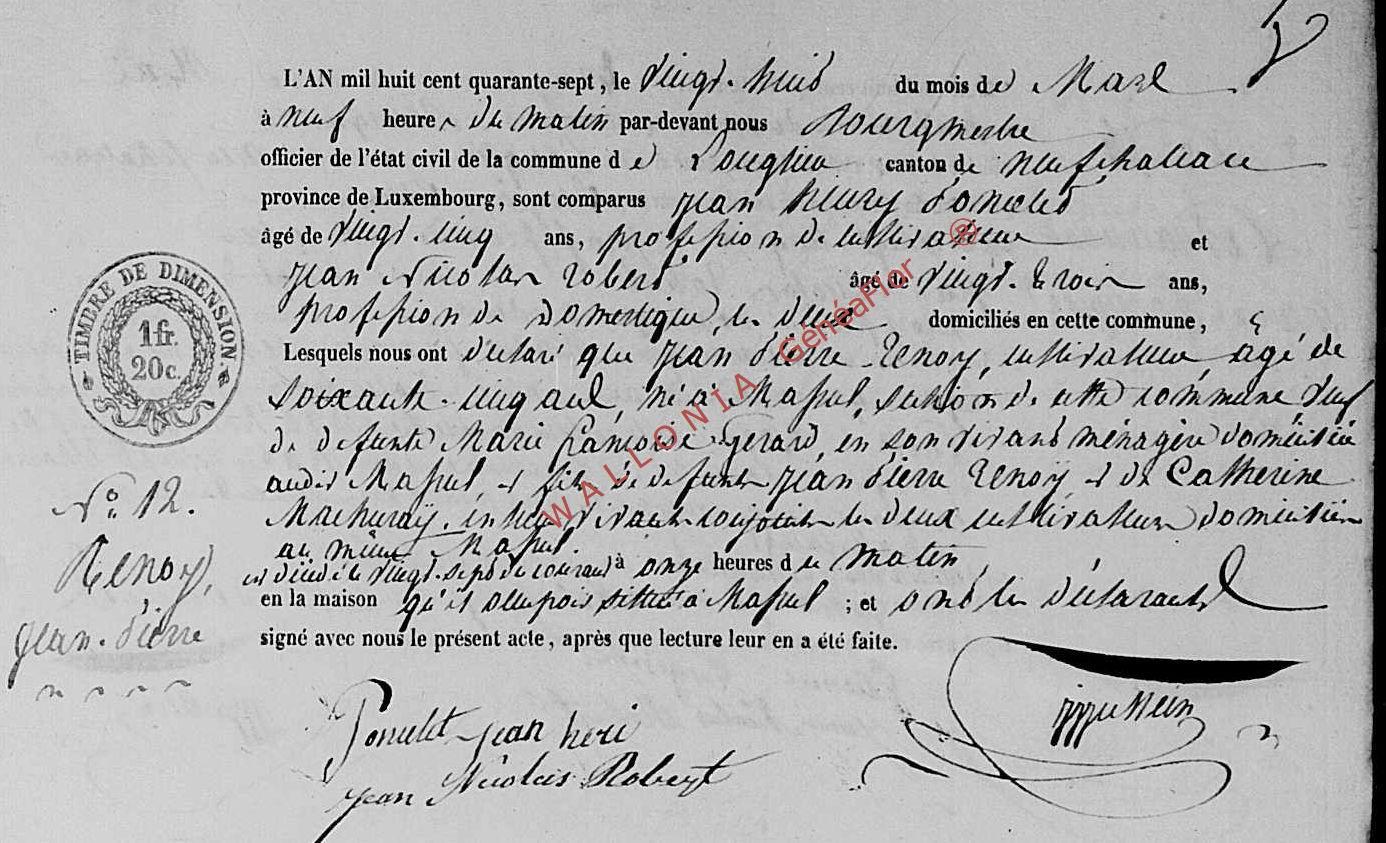 L'AN mil huit cent quarante-sept, le vingt-huit du mois de Mars
à neuf heures du matin par-devant nous Bourgmestre
officier de l'état civil de la commune de Longlier canton de neufchateau
province de Luxembourg, sont comparus jean henry Poncelet
âgé de vingt-cinq ans, profession de cultivateur et
jean Nicolas robert âgé de vingt-trois ans,
profession de domestique, les deux domiciliés en cette commune,
Lesquels nous ont declaré que jean Pierre Renoy, cultivateur, agé de
soixante-cinq ans, né à Massul, section de cette commune, veuf
de defunte Marie françoise Gerard, en son vivant ménagère domiciliée
audit Massul, et fils de defunts jean Pierre Renoy et de Catherine
Machuray, en leur vivant conjoints les deux cultivateurs domiciliés
au même Massul.
est décédé le vingt-sept de courant à onze heures du matin,
en la maison qu'il occupois située à Massul ; et ont les déclarants
signé avec nous le présent acte, après que lecture leur en a été faite.
TIMBRE DE DIMENSION
1 fr.
20 c.
N° 12.
Renoy,
jean-Pierre
Poncelet jean heri
jean Nicolas Robert
WALLONIA GénéaFlor